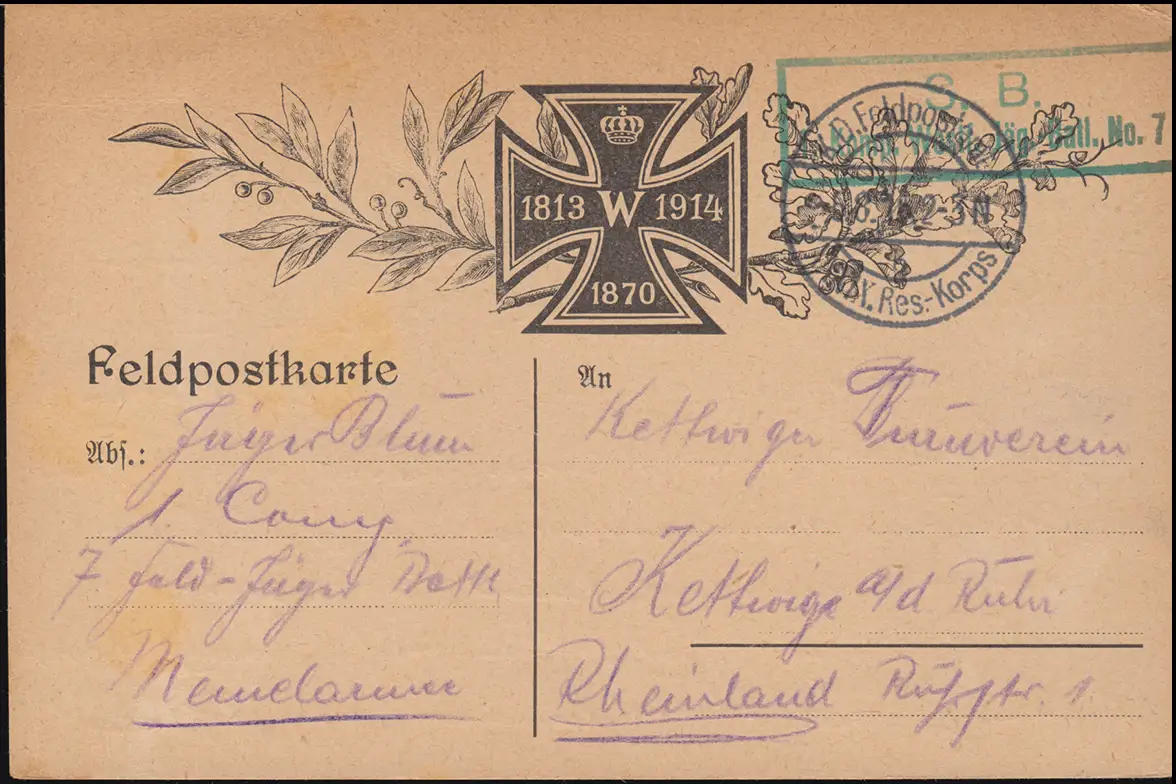 S. B.
Jäg. Batl. No. 7
K.D. Feldpostexp.
2-3N
Res.-Korps
1813 W 1914
1870
Feldpostkarte
An
Abs.: Jäger Blum
Kettwiger Turnverein
1. Comp.
7 Feld-Jäger Batl.
Kettwig a/d Ruhr
Rheinland Ruhrstr. 1